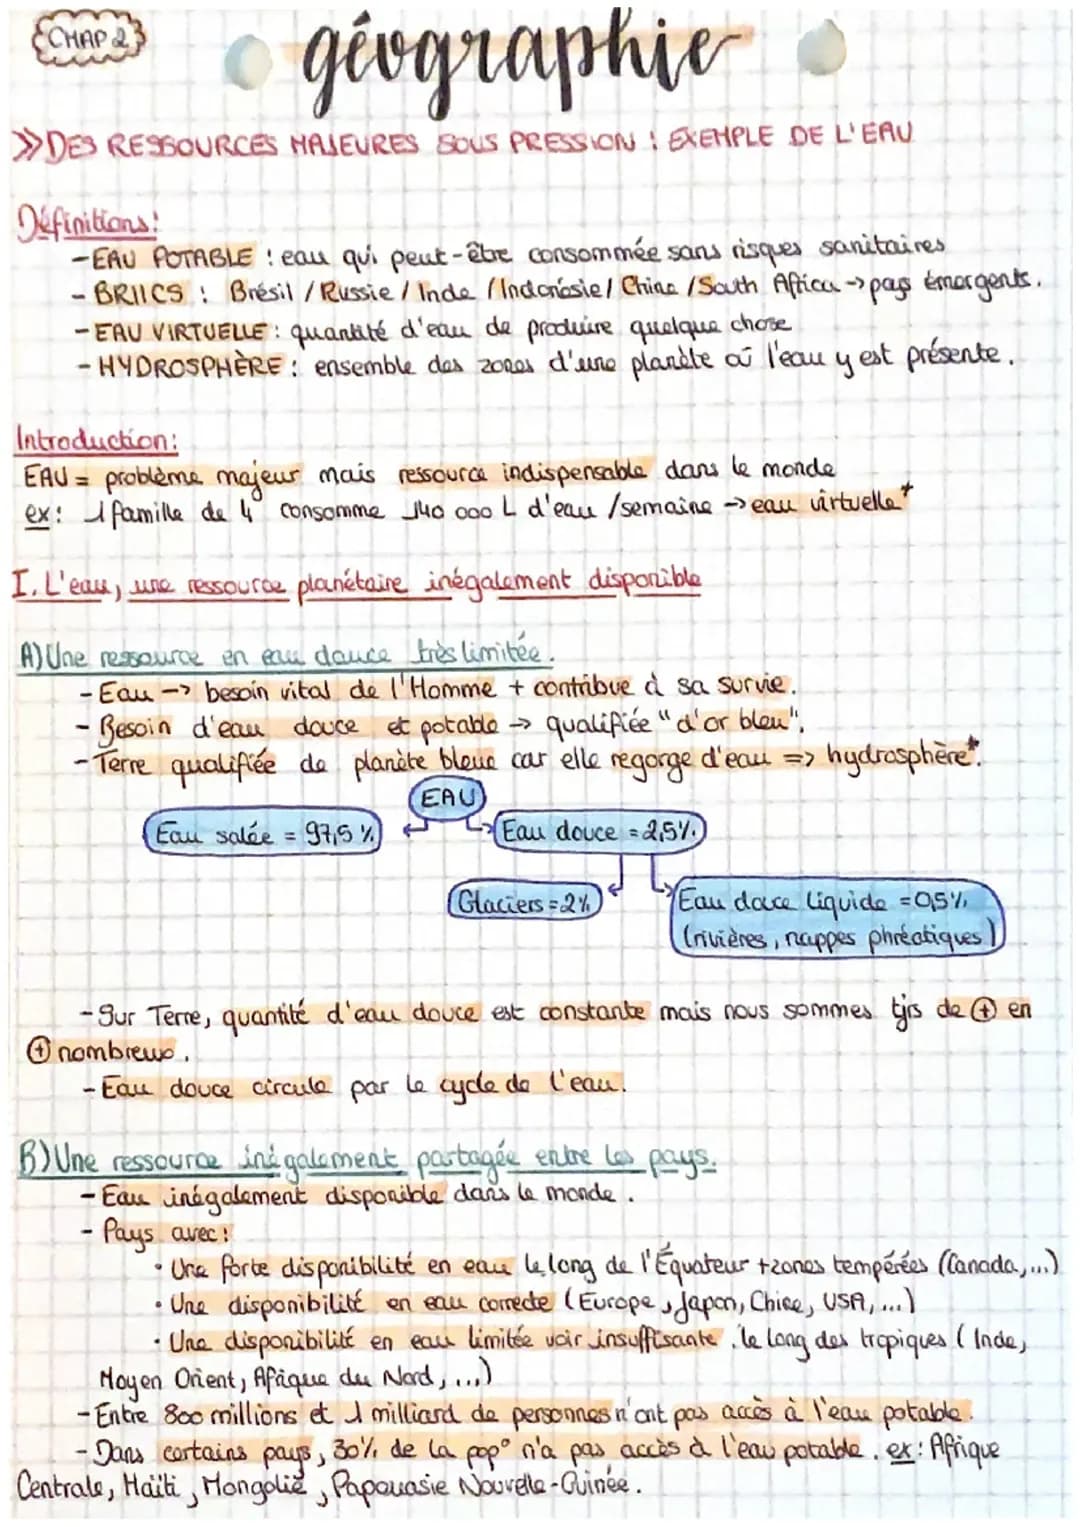 CHAP 2
géographie
>> DES RESSOURCES MAJEURES SOUS PRESSION : EXEMPLE DE L'EAU
Définitions:
- EAU POTABLE : eau qui peut-être consommée sans risques sanitaires
- BRIICS : Brésil / Russie / Inde / Indonésie / Chine / South Africa -> pays émergents.
- EAU VIRTUELLE : quantité d'eau de produire quelque chose
- HYDROSPHÈRE : ensemble des zones d'une planète où l'eau y est présente.
Introduction:
EAU = problème majeur mais ressource indispensable dans le monde
ex: 1 famille de 4 consomme 140 000 L d'eau /semaine -> eau virtuelle*
I. L'eau, une ressource planétaire inégalement disponible
A) Une ressource en eau douce très limitée.
- Eau -> besoin vital de l'Homme + contribue à sa survie.
- Besoin d'eau douce et potable -> qualifiée "d'or bleu".
- Terre qualifiée de planète bleue car elle regorge d'eau => hydrosphère*.
EAU
Eau salée = 97,5 %
Eau douce = 2,5%.
Glaciers = 2%
Eau douce liquide = 0,5%
(rivières, nappes phréatiques)
- Sur Terre, quantité d'eau douce est constante mais nous sommes tjrs de ⊕ en
⊕ nombreux.
- Eau douce circule par le cycle de l'eau.
B) Une ressource inégalement partagée entre les pays.
- Eau inégalement disponible dans le monde.
- Pays avec:
• Une forte disponibilité en eau le long de l'Équateur + zones tempérées (Canada,...)
• Une disponibilité en eau correcte (Europe, Japon, Chine, USA,...)
• Une disponibilité en eau limitée voir insuffisante. le long des tropiques (Inde,
Moyen Orient, Afrique du Nord,...)
- Entre 800 millions et 1 milliard de personnes n'ont pas accès à l'eau potable.
- Dans certains pays, 30% de la pop° n'a pas accès à l'eau potable. ex: Afrique
Centrale, Haïti, Mongolie, Papouasie Nouvelle-Guinée.